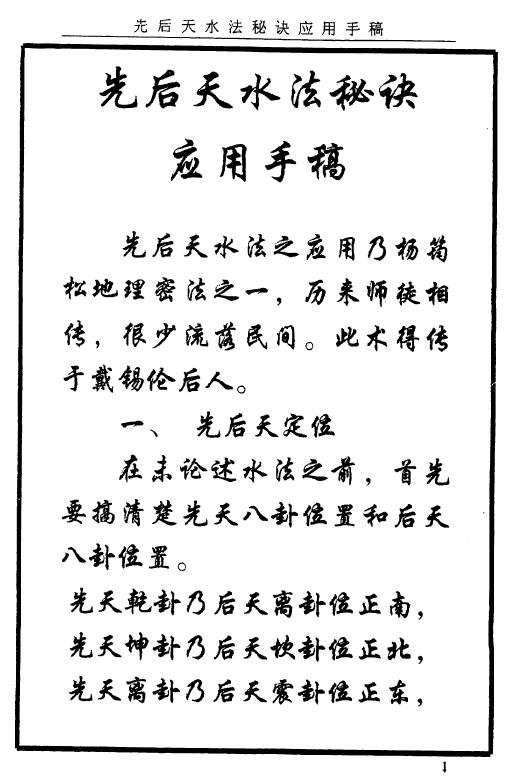 先后天水法秘诀应用手稿
先后天水法秘诀
应用手稿
先后天水法之应用乃杨筠
松地理密法之一，历来师徒相
传，很少流落民间。此术得传
于戴锡伦后人。
一、 先后天定位
在未论述水法之前，首先
要搞清楚先天八卦位置和后天
八卦位置。
先天乾卦乃后天离卦位正南，
先天坤卦乃后天坎卦位正北，
先天离卦乃后天震卦位正东，
1